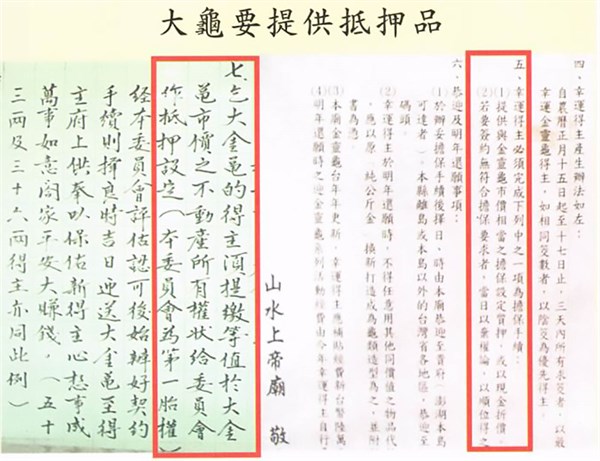 大龜要提供抵押品
四、幸運得主產生辦法如左：
自農曆正月十五日起至十七日止，三天內所有求筊者，以最
幸運金靈龜得主，如相同筊數者，以陰筊為優先得主。
五、幸運得主必須完成下列中之一項為擔保手續：
(1)提供與金靈龜市價相當之擔保設定質押，或以現金折價。
(2)若要簽約無符合擔保要求者，當日以棄權論，以順位得之
六、恭迎及明年還願事項：
(1)於辦妥擔保手續後擇日，時由本廟恭迎至貴府（澎湖本島
可達者），本縣離島或本島以外的台灣省各地區，恭迎至
碼頭。
(2)幸運得主於明年還願時，不得任意用其他同價值之物品代
，應以原（純公斤金）換新打造成為龜類造型為之，並附
書為憑。
(3)本廟金靈龜台年年更新，幸運得主應補貼經費新台幣陸萬
(4)明年還願時之迎金靈龜系列活動經費由今年幸運得主自行
山水上帝廟 敬
七、乞大金龜的得主須提繳等值於大金
龜市價之不動產所有權狀給委員會
作抵押設定（本委員會為第一胎權）
經本委員會評估認可後始辦好契約
手續則擇良時吉日迎送大金龜至得
主府上供奉以保佑新得主心想事成
萬事如意闔家平安大賺錢，（五十
三兩及三十六兩得主亦同此例）